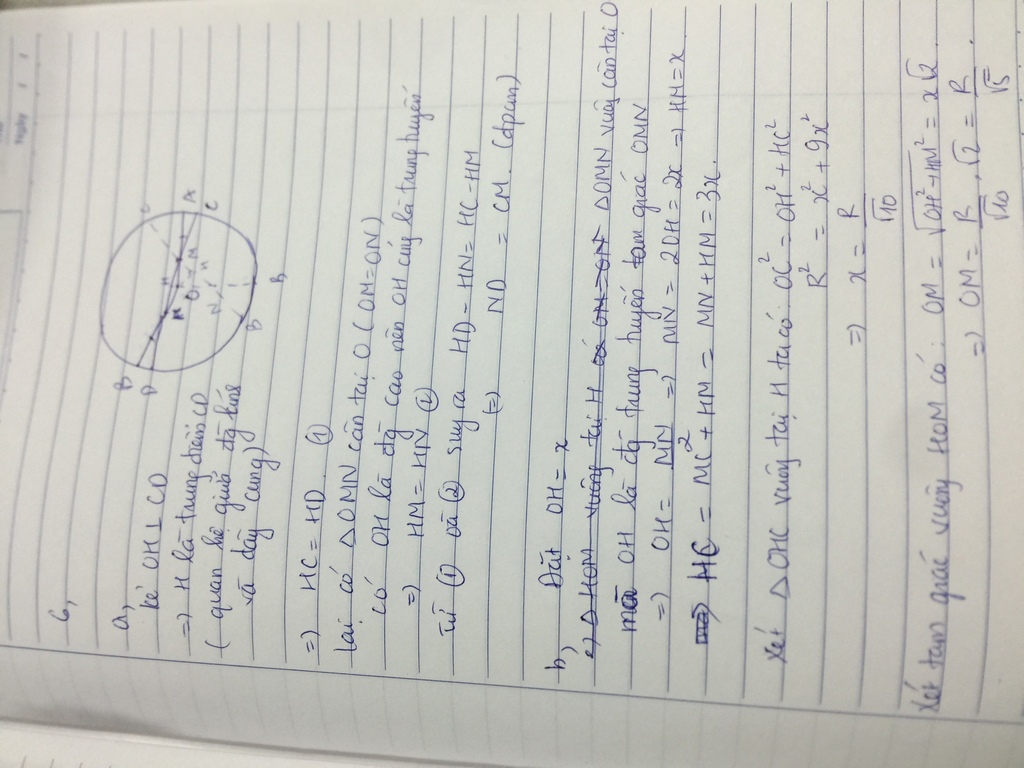 6,
a,
kẻ OH ⊥ CD
=) H là trung điểm CD
( quan hệ giữa đg kính
và dây cung)
B
D
H
M
A
C
O
N
B
B
=) HC = HD. ①
lại có △OMN cân tại O (OM=ON)
có OH là đg cao nên OH cũng là trung tuyến
=) HM = HN ②
từ ① và ② suy ra HD - HN = HC - HM
(=) ND = CM. (đpcm)
b) Đặt OH = x
=) △HOM vuông tại H có OH=ON △OMN vuông cân tại O
mà OH là đg trung tuyến tam giác OMN
=) OH = MN/2 =) MN = 2OH = 2x =) HM = x
=) HC = MC + HM = MN + HM = 3x.
Xét △OHC vuông tại H ta có: OC² = OH² + HC²
R² = x² + 9x²
=) x = R/√10
Xét tam giác vuông HOM có: OM = √OH²+HM² = x√2
=) OM = R/√10 . √2 = R/√5 .